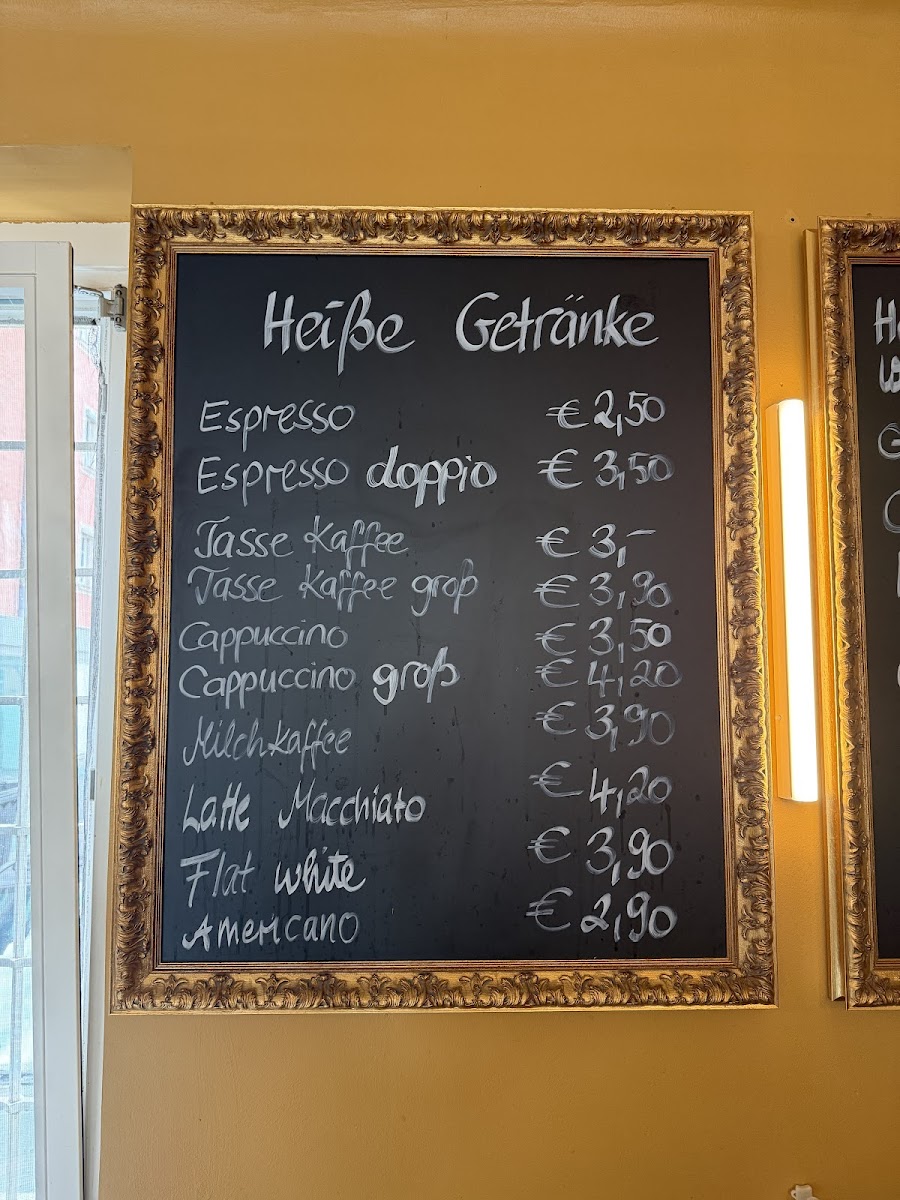 Heiße Getränke
Espresso € 2,50
Espresso doppio € 3,50
Tasse Kaffee € 3,-
Tasse Kaffee groß € 3,90
Cappuccino € 3,50
Cappuccino groß € 4,20
Milchkaffee € 3,90
Latte Macchiato € 4,20
Flat white € 3,90
Americano € 2,90